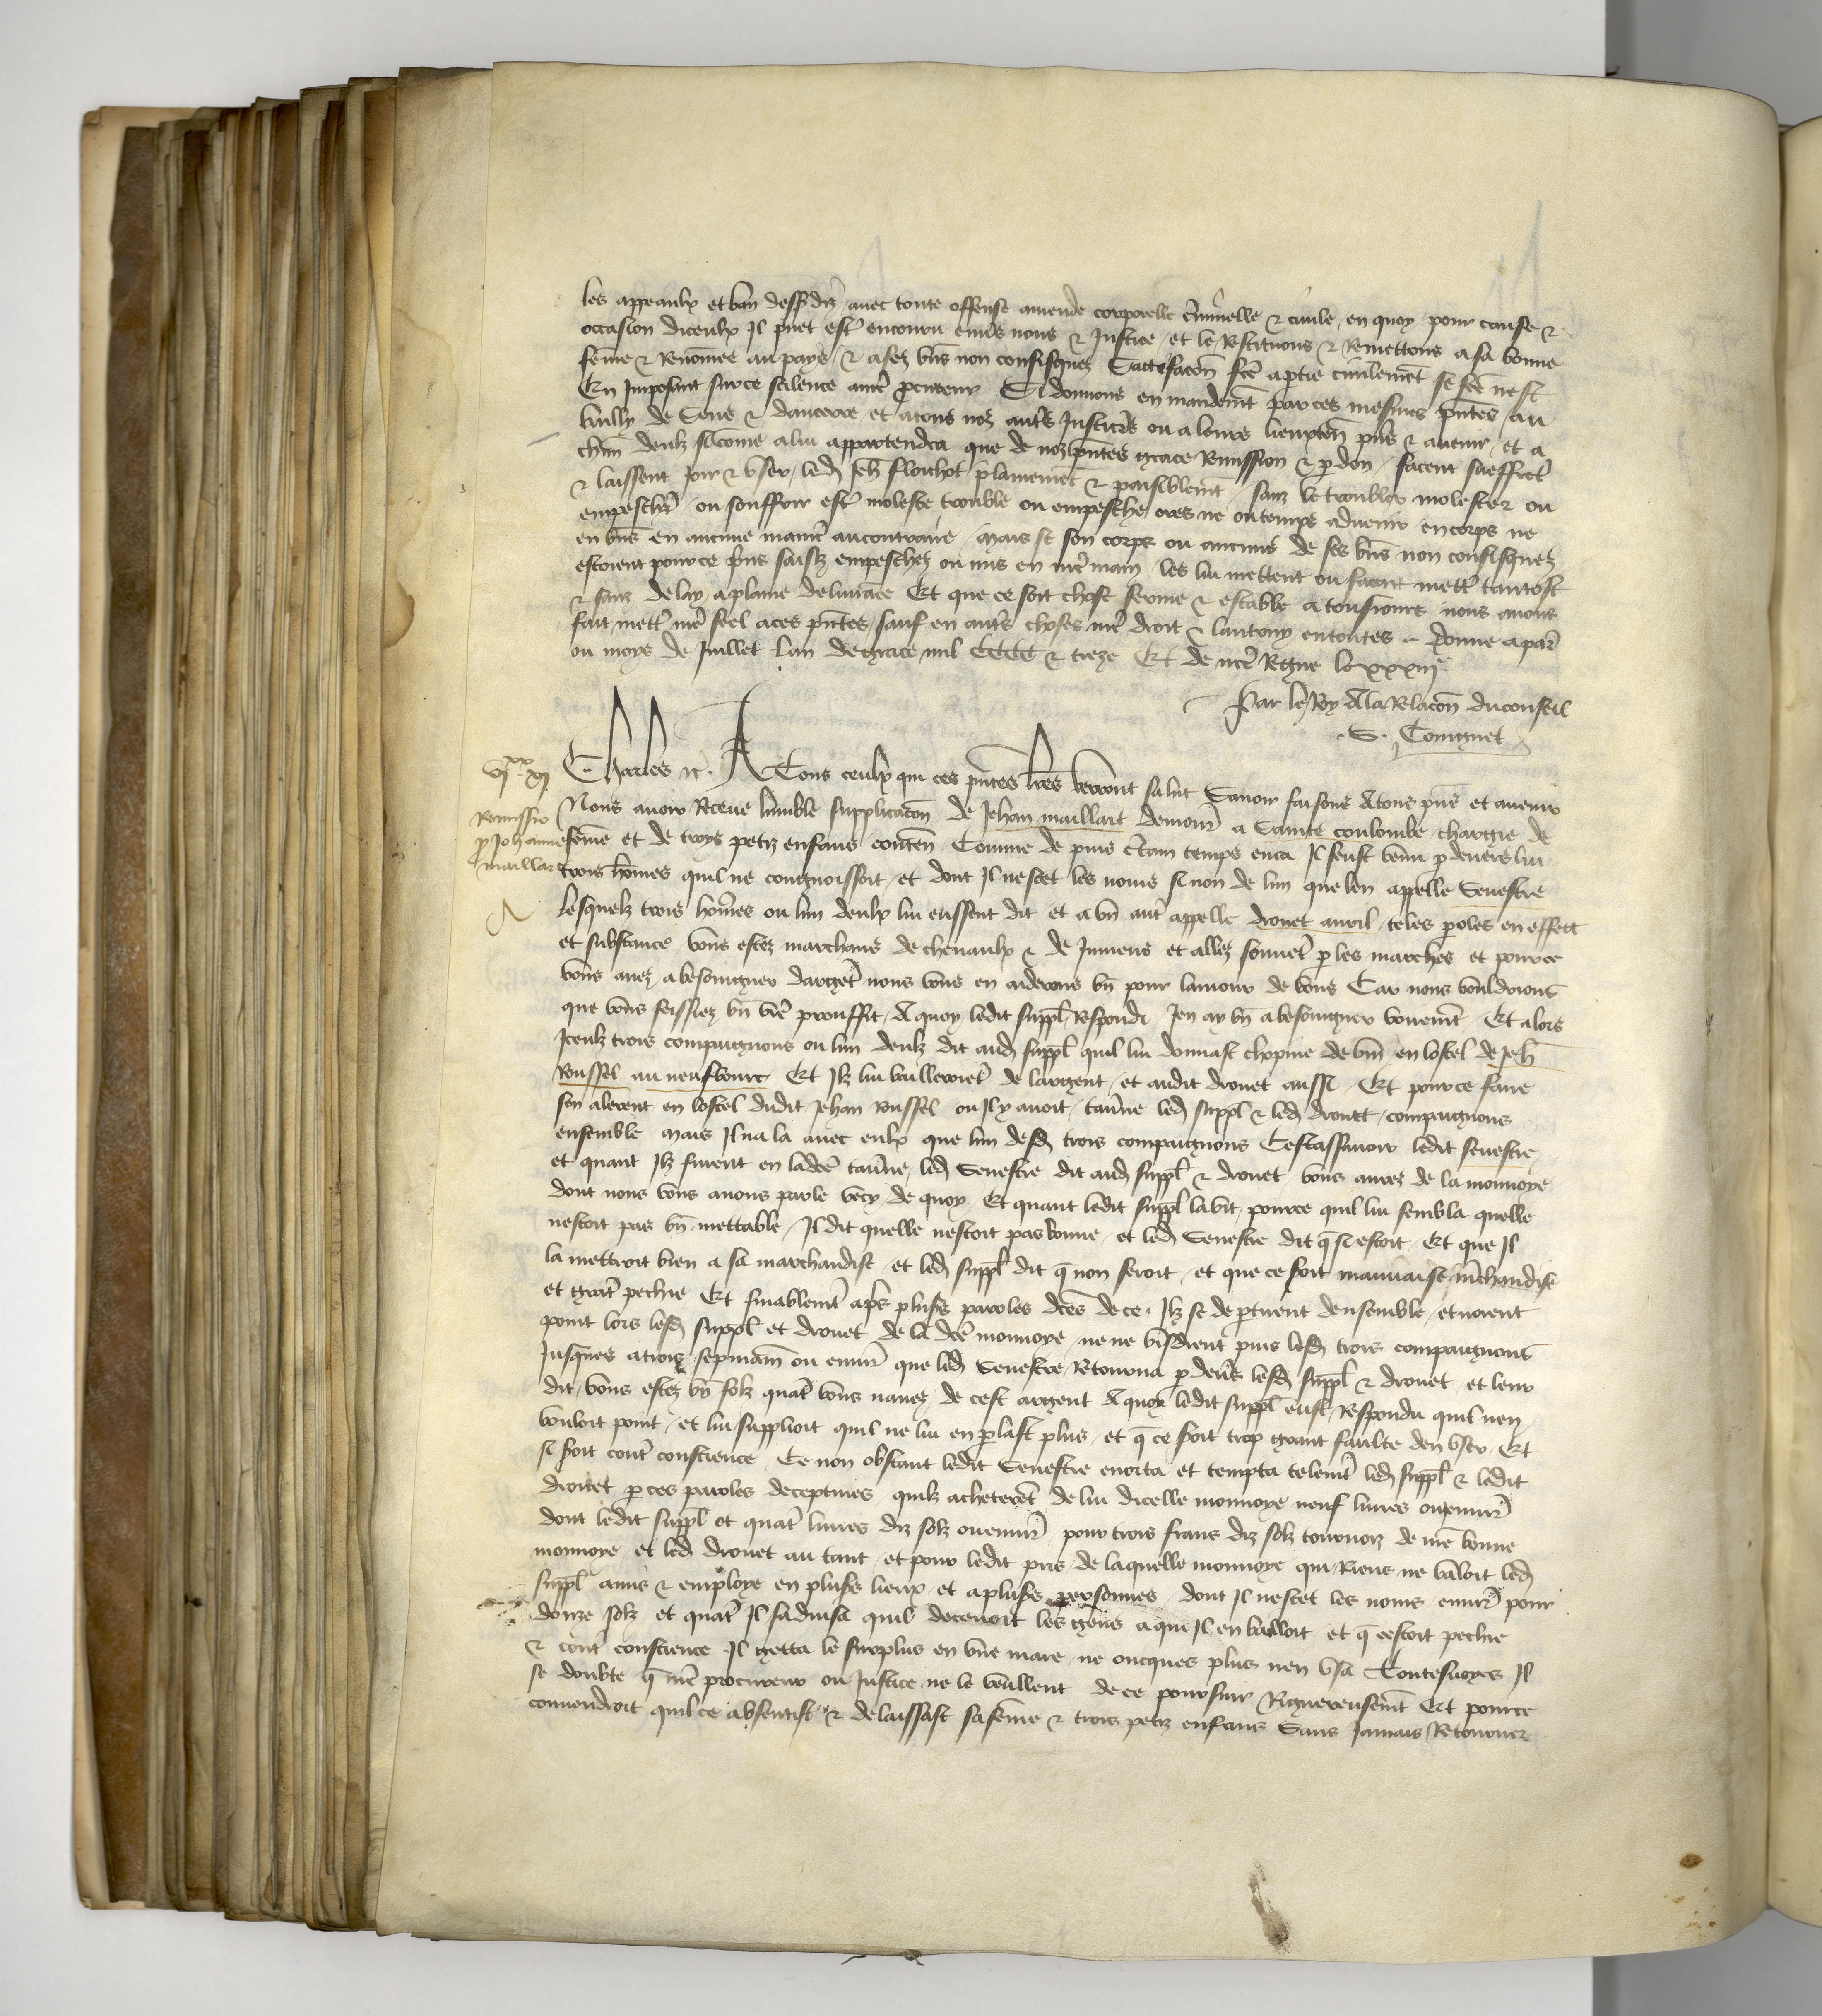 les appeaulx et ban dessusdiz avec toute offense amende corporelle criminelle & civile en quoy pour cause &
occasion diceulx Il puet estre encouru envers nous & Justice et le Restituons & Remettons a sa bonne
feme & Renomee au pays & a sez bns non confisquez Satisfacon fce a ptie civilemet se fce nest
En Imposant sur ce scilence a nre procureur Si donnons en mandemt par ces mesmes pntes au
bailly de Sens & daucerre et a tous noz autrs Justiciers ou a leurs lieuxten pns & avenir et a
chun deulz si come a lui appartendra que de noz pntes grace Remission & pdon facent sueffret
& laissent Joir & user led Jeh flouchot plainemet & paisiblemt sanz le troubler molester ou
empescher ou souffrir estre moleste trouble ou empesche ores ne ou temps advenir en corps ne
en bns en aucune manie au contraire mais se son corps ou aucuns de ses bns non confisquez
estoient pour ce prins saisiz empeschez ou mis en nre main les lui mettent ou facent mettre tantost
& sans delay a plaine delivrace Et que ce soit chose ferme & estable a tousjours nous avons
fait mettre nre seel a ces pntes sauf en autrs choses nre droit & lautruy en toutes donne a paris
ou moys de Juillet Lan de grace mil CCCC & treze Et de nre Regne le xxxiij
Par le Roy A la Relacon du conseil
S. Couignet
vjxx xj
Charles &c. A Tous ceulx qui ces pntes lres verront salut Savoir faisons A tous pns et avenir
Remissio p Johanne maillart
Nous avoir Receue lumble supplicacon de Jehan maillart demour a Sainte coulombe chargie de
feme et de troys petiz enfans conten Comme de puis certain temps enca Il feust venu p devers lui
trois homes quil ne congnoissoit et dont Il ne scet les noms si non de lun que len appelle Senestre
Lesquelz trois homes ou lun deulx lui eussent dit et a un autre appelle drouet avril teles poles en effect
et substance vous estez marchans de chevaulx & de Jumens et allez souvet p les marches et pour ce
vous avez a besoingner darget nous vous en aiderons bn pour lamour de vous Car nous vouldrions
que vous feissiez bn vre prouffit A quoy ledit suppl Respondi Jen ay bn a besoingner vraiemt Et alors
Iceulz trois compaignons ou lun deulz dit aud suppl quil lui donnast chopine de vin en lostel de Jeh
Roussel au neufbourc Et Ilz lui bailleroiet de largent et audit drouet aussi Et pour ce faire
sen alerent en lostel dudit Jehan Roussel ou Il y avoit taverne led suppl & led drouet compaignons
ensemble mais Il na la avec eulx que lun desd trois compaignons Cestassavoir ledit senestre
et quant Ilz furent en ladce taverne led Senestre dit aud suppl & drouet vous aurez de la monnoye
dont nous vous avons parle vecy de quoy Et quant ledit suppl la vit pource quil lui sembla quelle
nestoit pas bn mettable Il dit quelle nestoit pas bonne et led Senestre dit q si estoit Et que Il
la mettroit bien a sa marchandise et led suppl dit q non feroit et que ce soit mauvaise mchandise
et grat pechie Et finablemt aprs plusrs paroles dces de ce Ilz se departirent densemble et norent
point lors lesd suppl et drouet de la dce monnoye ne ne virent puis lesd trois compaignons
Jusques a trois sepmain ou environ que led Senestre Retourna p devrs lesd suppl & drouet et leur
dit vous estez bn folz quat vous navez de cest argent A quoy ledit suppl eust Respondu quil nen
vouloit point et lui supplioit quil ne lui en plast plus et q ce soit trop grant faulte den user Et
si soit contre conscience Ce non obstant ledit Senestre enorta et tempta telemt led suppl & ledit
drouet p ces paroles deceptives quilz acheteret de lui dicelle monnoye neuf livres ou environ
dont ledit suppl ot quatre livres diz solz ou environ pour trois frans diz solz tournois de nre bonne
monnoye et led drouet au tant et pour ledit pris de laquelle monnoye qui Riens ne valoit led
suppl a mis & employe en plusrs lieux et a plusrs personnes dont Il ne scet les noms environ pour
douze solz et quat Il sadvisa quil decevoit les gens a qui Il en bailloit et q cestoit pechie
& contre conscience Il getta le surplus en une mare ne oncques plus nen usa Toutesvoyes Il
se doubte q nre procureur ou Justice ne le veullent de ce poursuir Rigureusemt Et pource
convendroit quil ce absentist & delaissast sa feme & trois petiz enfans Sans Jamais Retourner